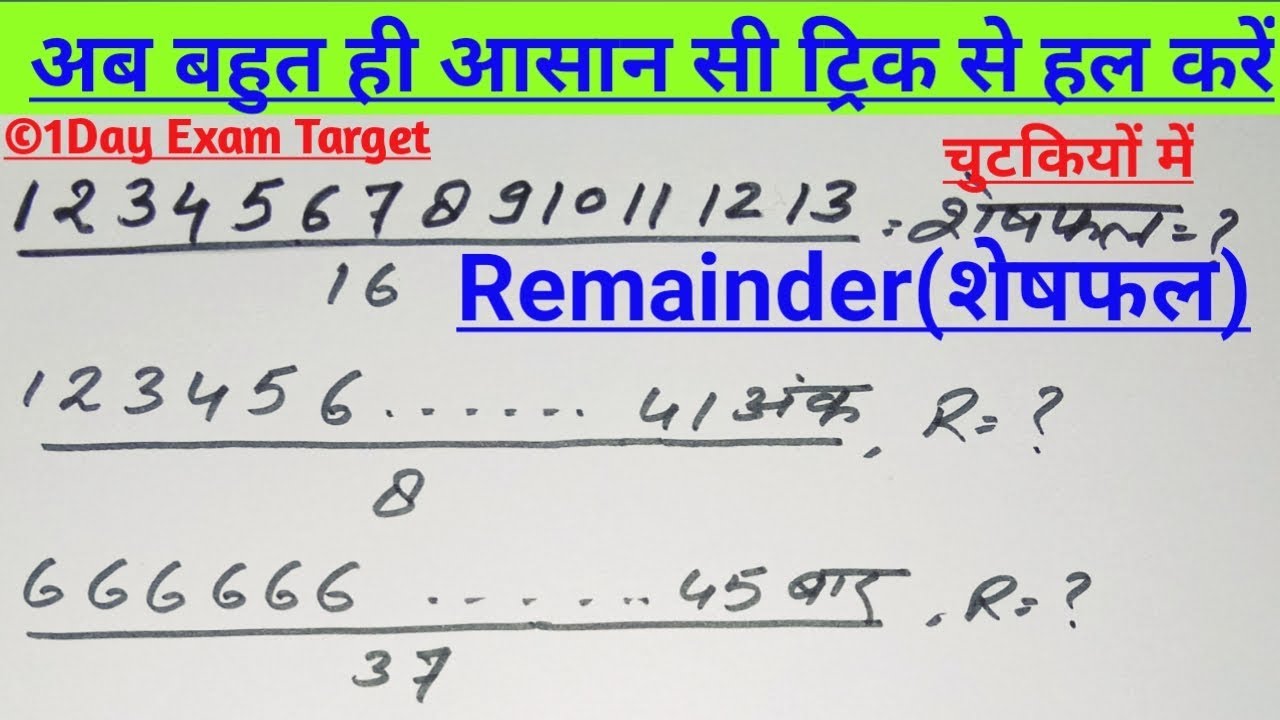 अब बहुत ही आसान सी ट्रिक से हल करें
©1Day Exam Target
चुटकियों में
12345678910111213 = शेषफल = ?
16
Remainder(शेषफल)
123456....... 41 अंक , R= ?
8
666666 ...... 45 बार , R= ?
37